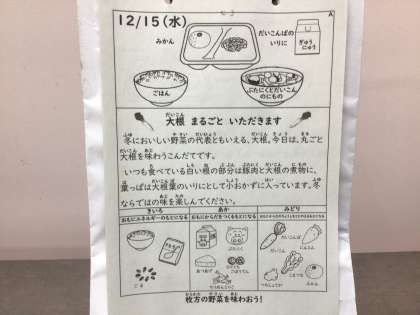 12/15(水)
A
みかん
だいこんばの
いりに
ぎゅう
にゅう
ごはん
ぶたにくとだいこん
のにもの
大根 まるごと いただきます
冬においしい野菜の代表ともいえる、大根。今日は、丸ごと
大根を味わうこんだてです。
いつも食べている白い根の部分は豚肉と大根の煮物に、
葉っぱは大根葉のいりにとして小おかずに入っています。冬
ならではの味を楽しんでください。
きいろ
あか
みどり
おもにエネルギーのもとになる
おもにからだをつくるもとになる
ぶたにく
だいこんば
にんじん
あつあげ
ごま
みかん
枚方の野菜を味わおう!